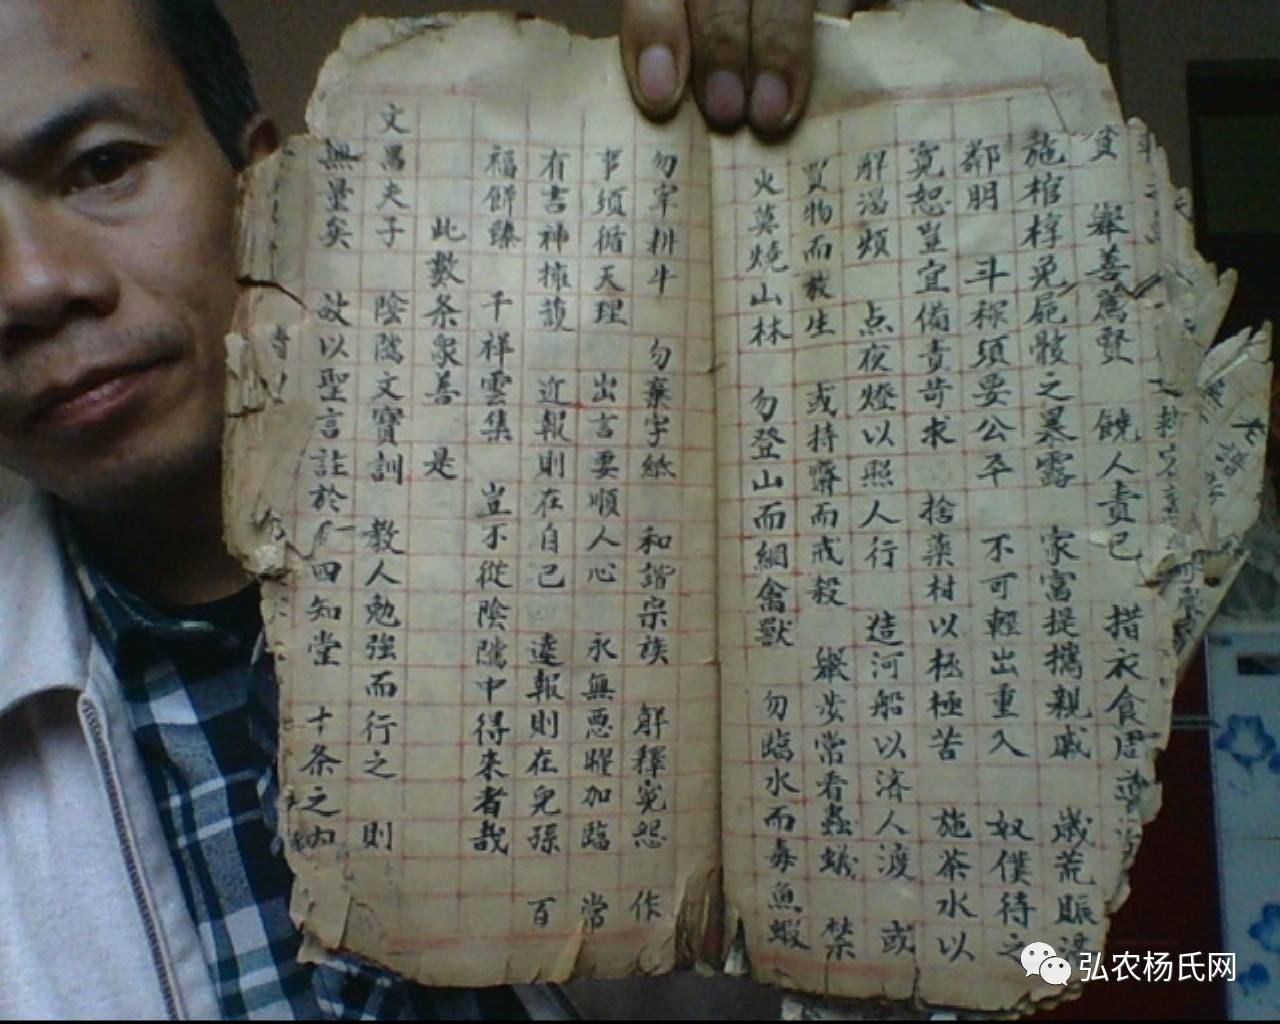 貧 舉善薦賢 饒人責己 措衣食周
施棺椁免屍骸之暴露 家富提攜親戚 歲荒賑濟
鄰朋 斗秤須要公平 不可輕出重入 奴僕待之
寬恕豈宜備責苛求 捨藥材以極極苦 施茶水以
解渴煩 点夜燈以照人行 造河船以済人渡 或
買物而放生 或持齋而戒殺 舉步常看蟲蟻 禁
火莫燒山林 勿登山而網禽獸 勿臨水而毒魚蝦
勿宰耕牛 勿棄字紙 和諧宗族 解釋寃怨 作
事須循天理 出言要順人心 永無惡曜加臨 常
有吉神擁護 近報則在自己 遠報則在兒孫 百
福駢臻 千祥雲集 豈不從陰隲中得来者哉
此數条衆善 是
文昌夫子 陰隲文寶訓 教人勉強而行之 則
無量矣 故以聖言註於 四知堂 十条之内
弘农杨氏网